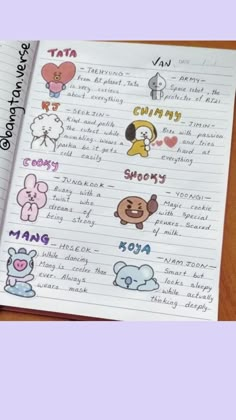 @bangtan.verse
TATA
- TAEHYUNG -
From BT planet, Tata
is very curious
about everything
VAN
- ARMY -
Space robot, the
protector of BT21
RJ
- SEOKJIN -
Kind and polite
the cutest while
mumbling. Wears a
parka bcz it gets
cold easily
CHIMMY
- JIMIN -
with passion
and tries
hard at
everything.
COOKY
- JUNGKOOK -
Bunny with a
twist who
dreams of
being strong.
SHOOKY
- YOONGI -
Magic cookie
with special
powers. Scared
of milk.
MANG
- HOSEOK -
While dancing
Mang is cooler than
ever. Always
wears mask
KOYA
- NAMJOON -
Smart but
looks sleepy
while actually
thinking deeply.